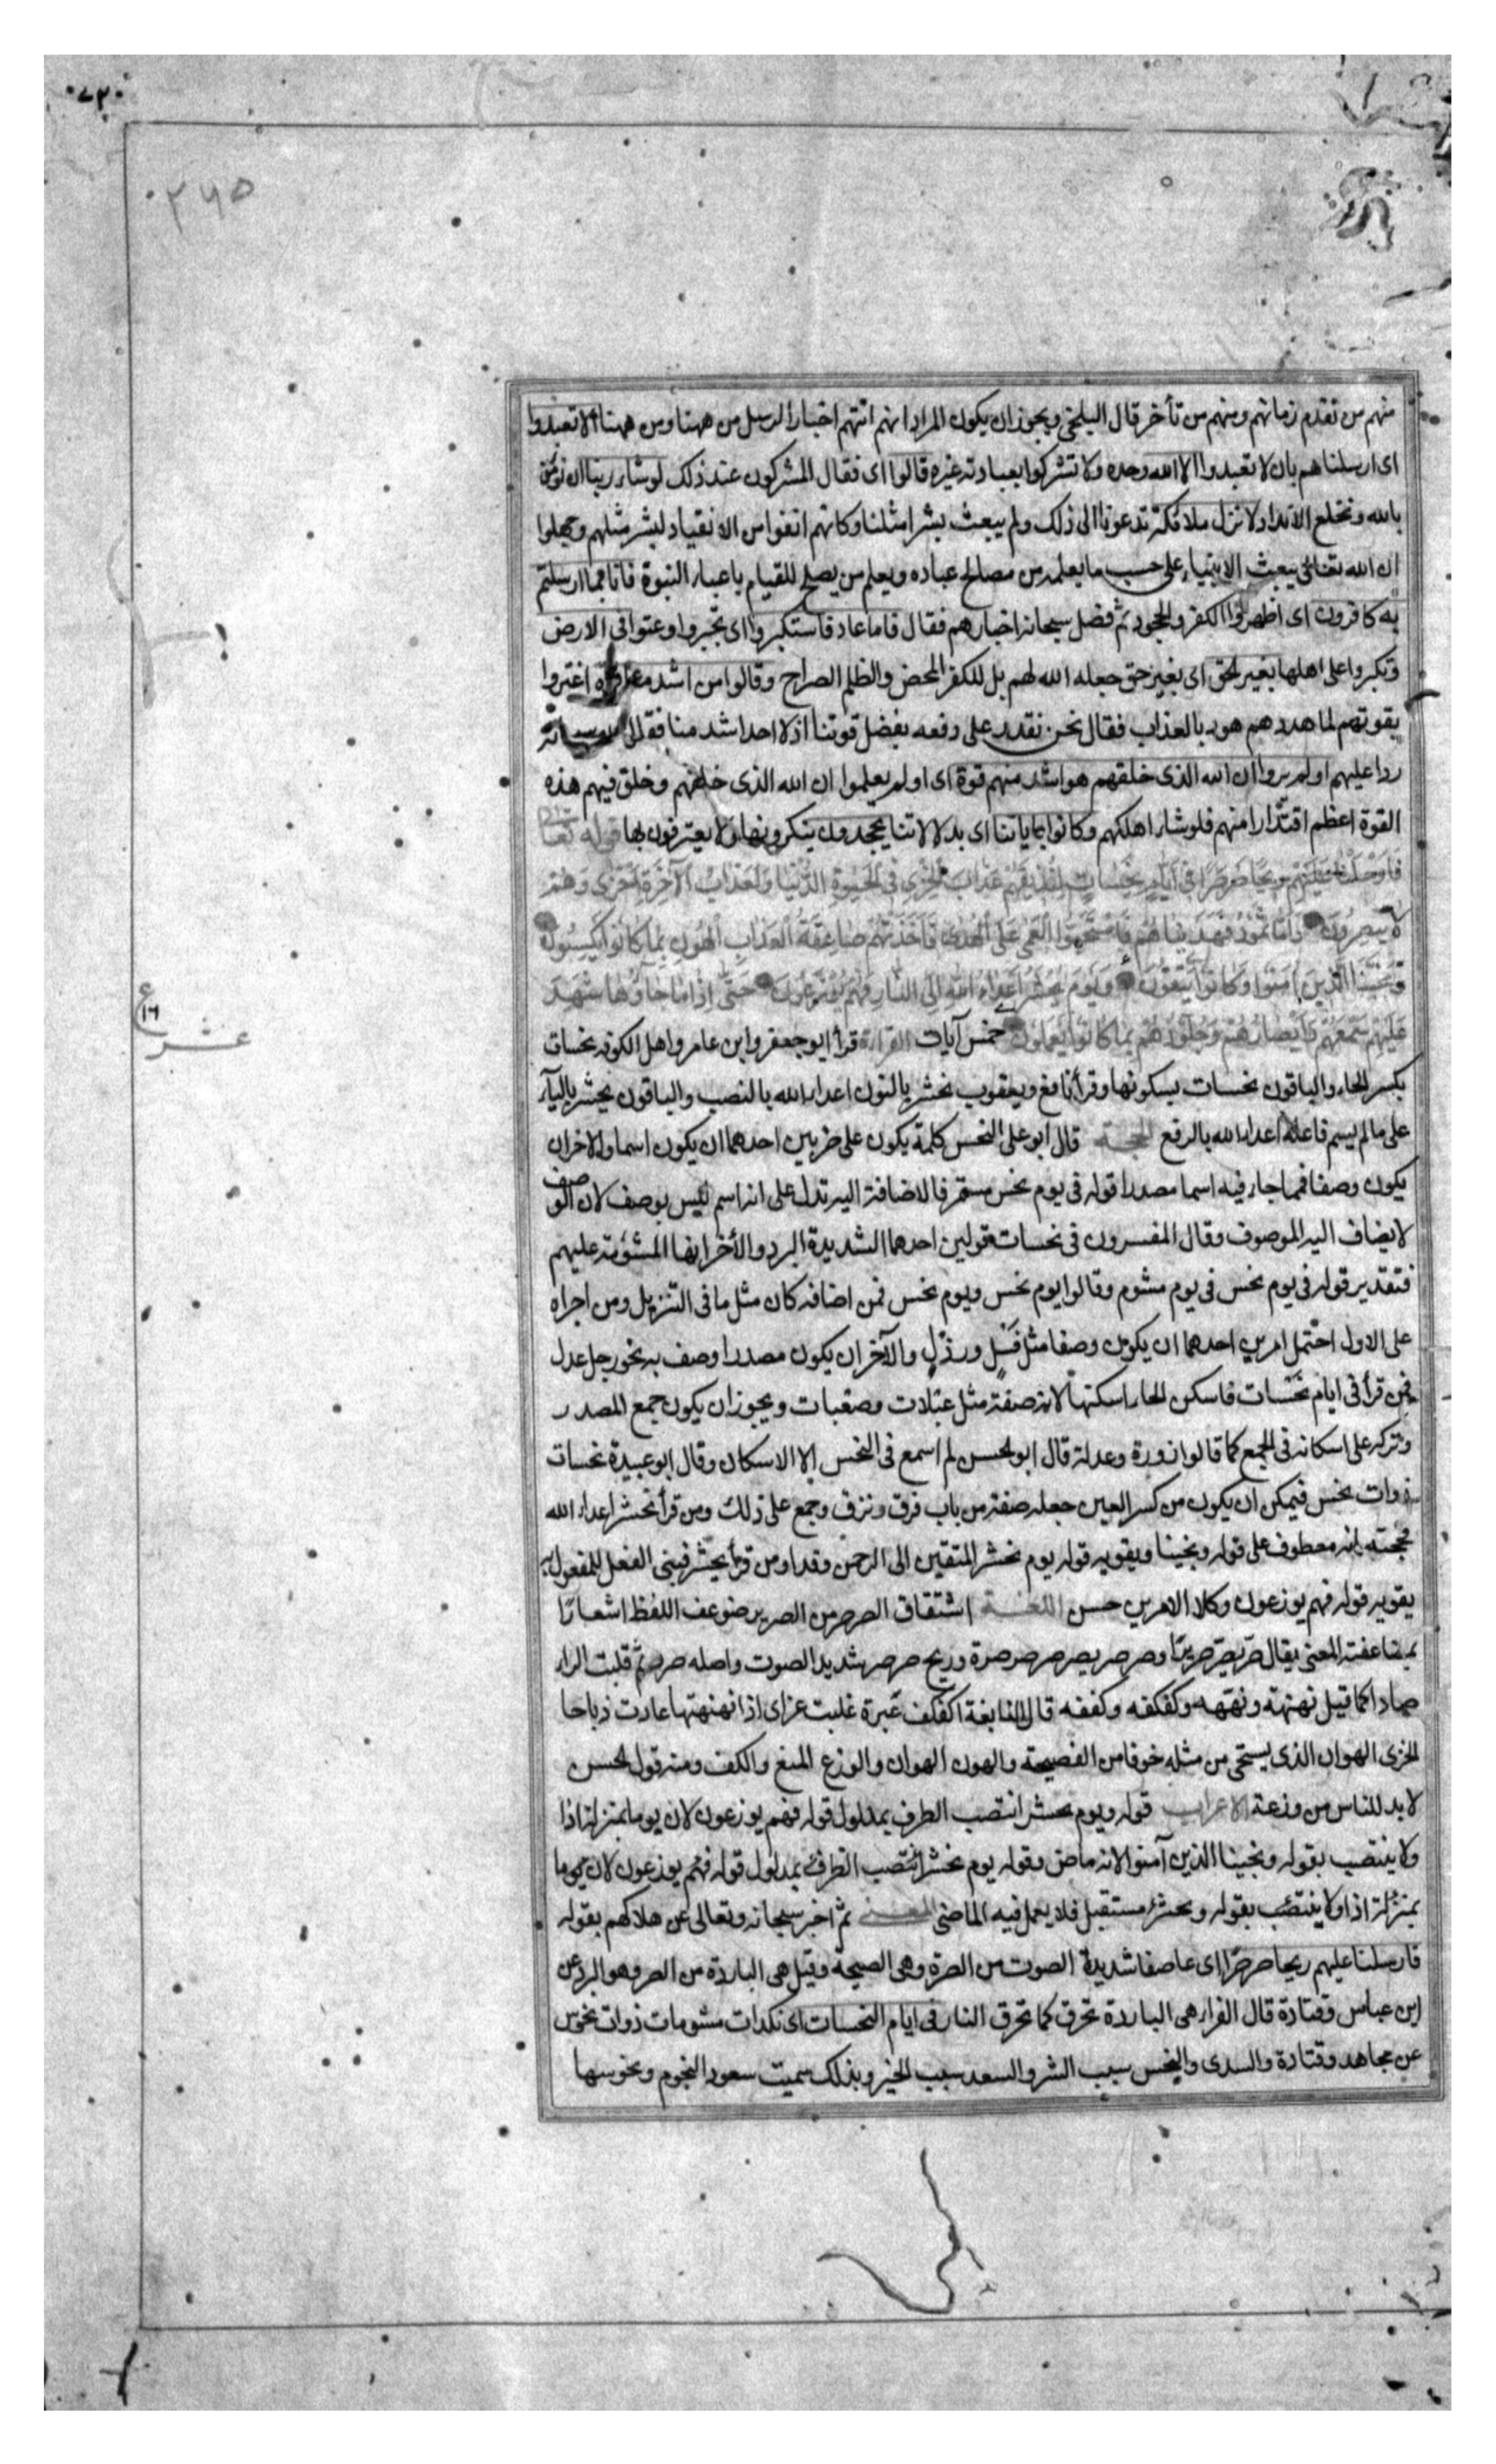 ٠٧٢٠
٢٧٥
منهم من تقدم زمانهم ومنهم من تأخر قال البلخى ويجوز ان يكون المراد انهم اتتهم اخبار الرسل من ههنا ومن ههنا الا تعبدوا
اى ارسلناهم بان لا تعبدوا الا الله وحده ولا تشركوا بعبادته غيره قالوا اى فقال المشركون عند ذلك لو شاء ربنا ان نؤمن
بالله ونخلع الانداد لانزل ملائكة تدعونا الى ذلك ولم يبعث بشرا مثلنا وكانهم انفوا من الانقياد لبشر مثلهم وجهلوا
ان الله تعالى يبعث الانبياء على حسب ما يعلمه من مصالح عباده ويعلم من يصلح للقيام باعباء النبوة فانا بما ارسلتم
به كافرون اى اظهروا الكفر والجحود ثم فصل سبحانه اخبارهم فقال فاما عاد فاستكبروا اى تجبروا وعتوا فى الارض
وتكبروا على اهلها بغير الحق اى بغير حق جعله الله لهم بل للكفر المحض والظلم الصراح وقالوا من اشد منا قوة اغتروا
بقوتهم لما هددهم هود بالعذاب فقال نحن نقدر على دفعه بفضل قوتنا اذ لا احد اشد منا فقال الله سبحانه
ردا عليهم اولم يروا ان الله الذى خلقهم هو اشد منهم قوة اى اولم يعلموا ان الله الذى خلقهم وخلق فيهم هذه
القوة اعظم اقتدارا منهم فلو شاء اهلكهم وكانوا بآياتنا اى بدلالاتنا يجحدون ينكرونها ولا يعترفون بها قوله تعالى
فَاَرْسَلْنَا عَلَيْهِمْ رِيحًا صَرْصَرًا فى اَيَّامٍ نَحِسَاتٍ لِنُذِيقَهُمْ عَذَابَ الْخِزْىِ فِى الْحَيٰوةِ الدُّنْيَا وَلَعَذَابُ الْآخِرَةِ اَخْزٰى وَهُمْ
لَا يُنْصَرُونَ وَاَمَّا ثَمُودُ فَهَدَيْنَاهُمْ فَاسْتَحَبُّوا الْعَمٰى عَلَى الْهُدٰى فَاَخَذَتْهُمْ صَاعِقَةُ الْعَذَابِ الْهُونِ بِمَا كَانُوا يَكْسِبُونَ
وَنَجَّيْنَا الَّذِينَ اٰمَنُوا وَكَانُوا يَتَّقُونَ وَيَوْمَ يُحْشَرُ اَعْدَاءُ اللهِ اِلَى النَّارِ فَهُمْ يُوزَعُونَ حَتّٰى اِذَا مَا جَاؤُهَا شَهِدَ
عَلَيْهِمْ سَمْعُهُمْ وَاَبْصَارُهُمْ وَجُلُودُهُمْ بِمَا كَانُوا يَعْمَلُونَ خمس آيات القراءة قرأ ابو جعفر وابن عامر واهل الكوفه نحسات
ع
١٦
عشر
بكسر الحاء والباقون نحسات بسكونها وقرأ نافع ويعقوب نحشر بالنون اعداء الله بالنصب والباقون يحشر بالياء
على ما لم يسم فاعله اعداء الله بالرفع الحجة قال ابو على النحس كلمة يكون على ضربين احدهما ان يكون اسما والاخر ان
يكون وصفا فمما جاء فيه اسما مصدرا قوله فى يوم نحس مستمر فالاضافة اليه تدل على انه اسم ليس بوصف لان الوصف
لا يضاف اليه الموصوف وقال المفسرون فى نحسات قولين احدهما الشديدة البرد والأخر انها المشؤمة عليهم
فتقدير قوله فى يوم نحس فى يوم مشوم وقالوا يوم نحس ويوم نحس فمن اضافه كان مثل ما فى التنزيل ومن اجراه
على الاول احتمل امرين احدهما ان يكون وصفا مثل فَسْلٍ ورذْلٍ والآخر ان يكون مصدرا وصف به نحو رجل عدل
فمن قرأ فى ايام نَحْسَات فاسكن الحاء اسكنها لانه صفة مثل عبلات وصعبات ويجوز ان يكون جمع المصدر
وتركه على اسكانه فى الجمع كما قالوا زورة وعدلة قال ابو الحسن لم اسمع فى النحس الا الاسكان وقال ابو عبيدة نحسات
ذوات نحس فيمكن ان يكون من كسر العين جعله صفة من باب فرق ونزق وجمع على ذلك ومن قرأ نحشر اعداء الله
فحجته انه معطوف على قوله ونجينا ويقويه قوله يوم نحشر المتقين الى الرحمن وفدا ومن قرأ يحشر فبنى الفعل للمفعول به
يقويه قوله فهم يوزعون وكلا الامرين حسن اللغة اشتقاق الصرصر من الصرير ضوعف اللفظ اشعارًا
بمضاعفة المعنى يقال صَرّ يصِرّ صريرًا وصرصر يصرصر صرصرة وريح صرصر شديد الصوت واصله صرر ثم قلبت الراء
صادا كما قيل نهنهه ونههه وكفكفه وكففه قال النابغة اكفكف عَبرة غلبت عزاى اذا نهنهتها عادت ذباحا
الخزى الهوان الذى يستحى من مثله خوفا من الفضيحة والهون الهوان والوزع المنع والكف ومنه قول الحسن
لا بد للناس من وزعة الاعراب قوله ويوم يحشر انتصب الظرف بمدلول قوله فهم يوزعون لان يوما بمنزلة اذا
ولا ينتصب بقوله ونجينا الذين آمنوا لانه ماض وقوله يوم نحشر انتصب الظرف بمدلول قوله فهم يوزعون لان يوما
بمنزلة اذا ولا ينتصب بقوله ويحشر مستقبل فلا يعمل فيه الماضى المعنى ثم اخبر سبحانه وتعالى عن هلاكهم بقوله
فارسلنا عليهم ريحا صرصرًا اى عاصفا شديدة الصوت من الصرة وهى الصيحة وقيل هى الباردة من الصر وهو البرد عن
ابن عباس وقتادة قال الفراء هى الباردة تحرق كما تحرق النار فى ايام النحسات اى نكدات مشومات ذوات نحوس
عن مجاهد وقتادة والسدى والنحس سبب الشر والسعد سبب الخير وبذلك سميت سعود النجوم ونحوسها